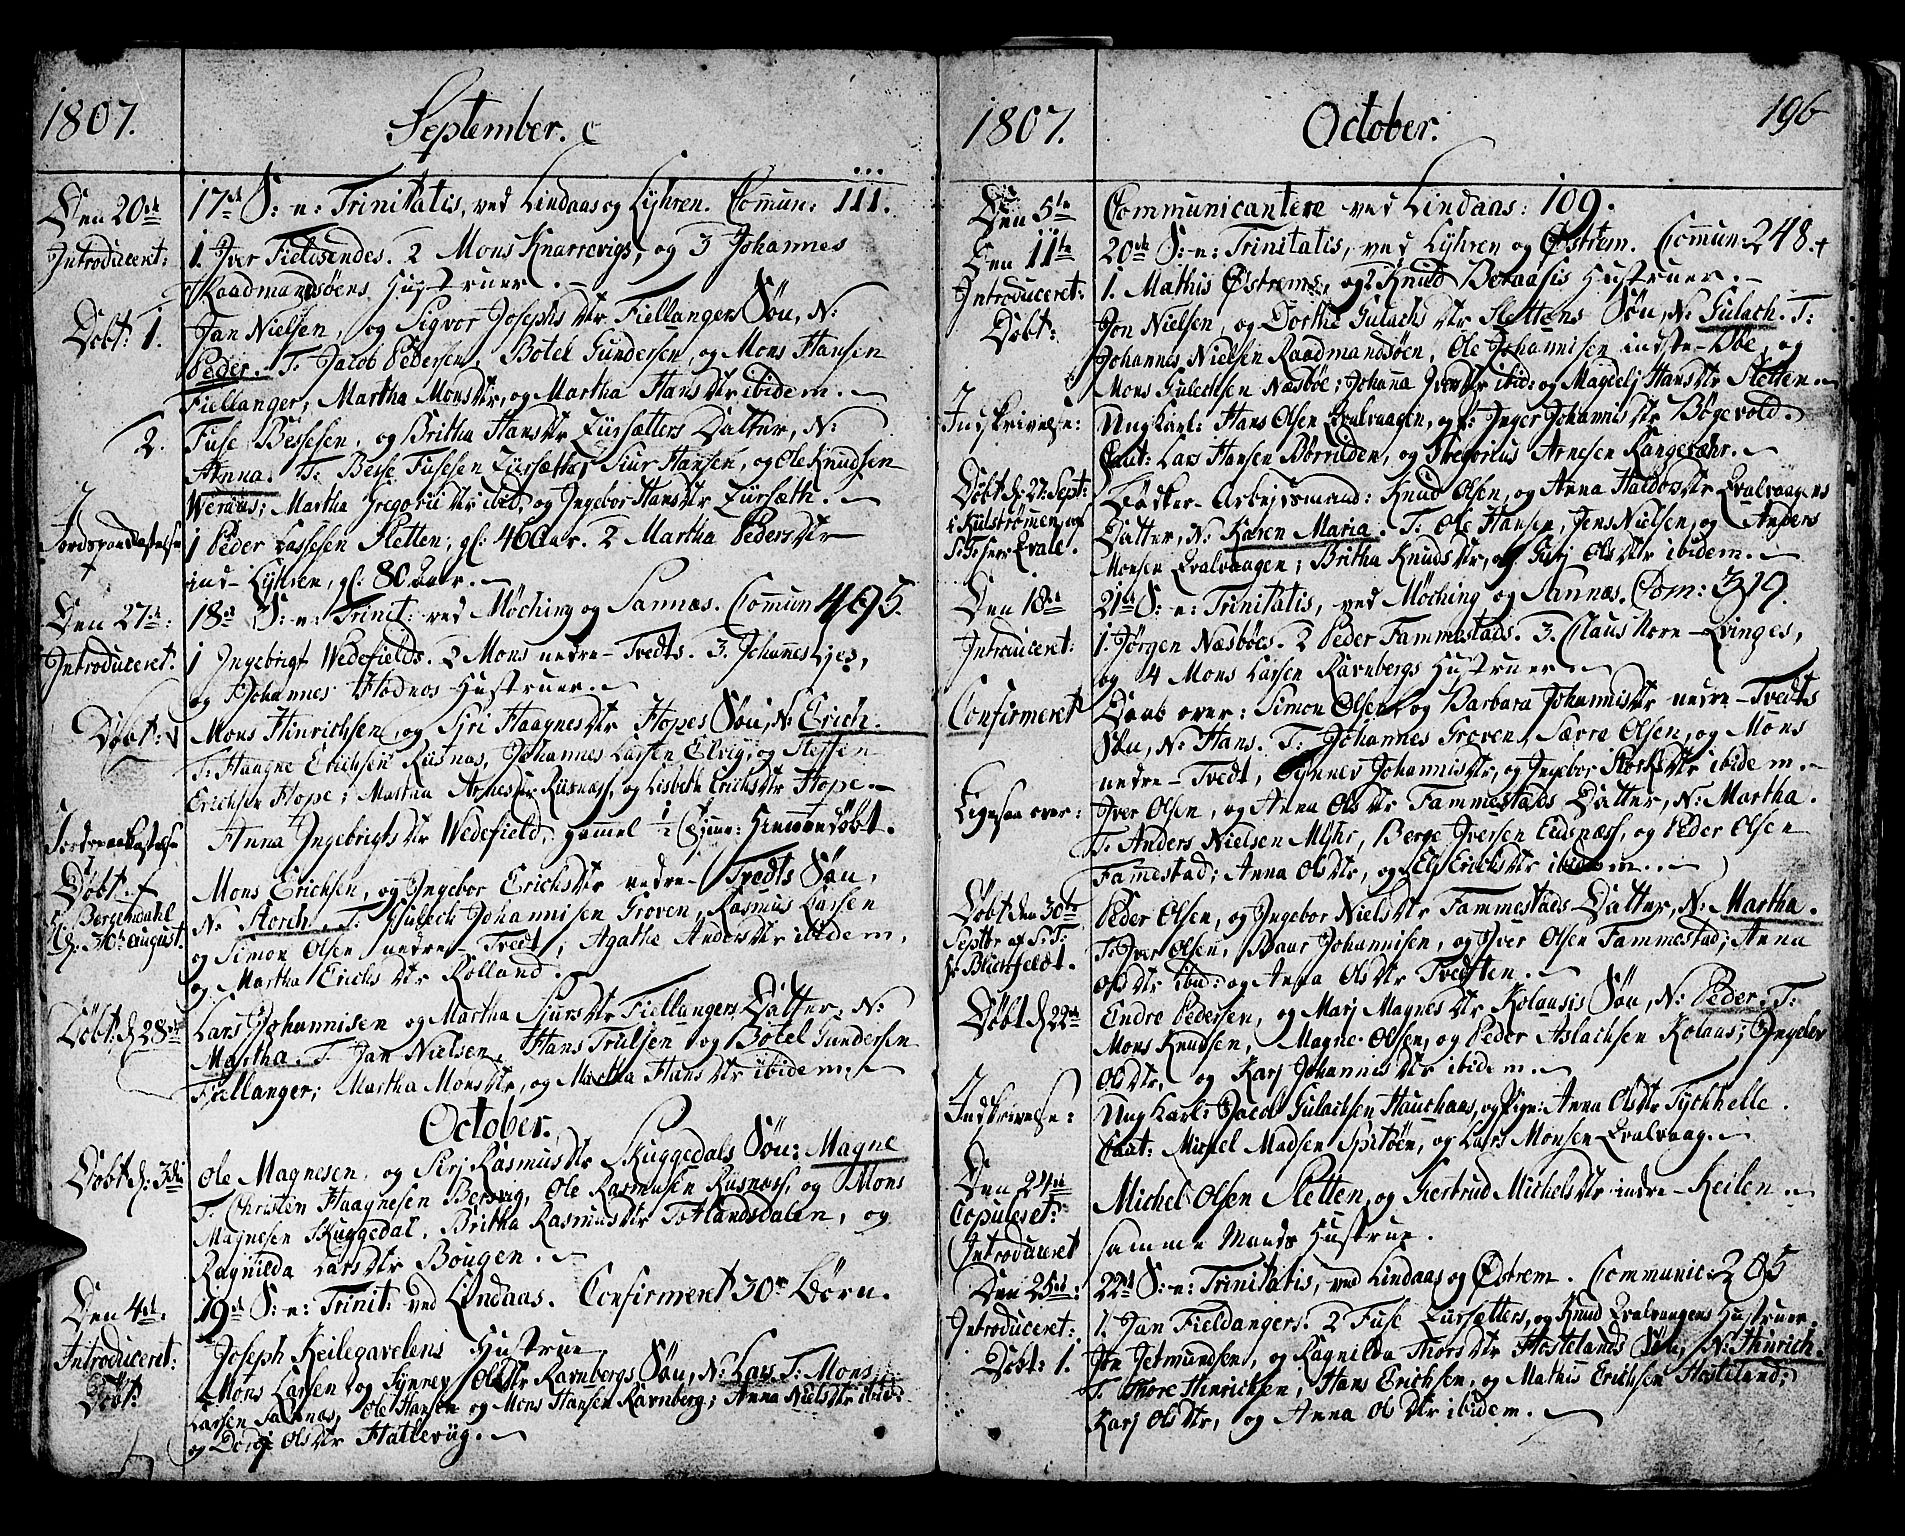 1807. September.
Den 20de 17de S: e: Trinitatis, ved Lindaas og Lyhren. Commun: 111.
Introduceret: 1. Jver Fieldsendes. 2 Mons Knarrevigs, og 3 Johannes
Raadmandsöens Hustruer.
Döbt: 1. Jan Nielsen, og Sigvor Josephsdtr Fiellanger Sön, N:
Peder. T: Jacob Pedersen, Botel Gundersen, og Mons Hansen
Fiellanger, Martha Monsdtr, og Martha Hansdtr ibidem.
2. Fuse Bessesen, og Britha Hansdtr Eürsætters Datter, N:
Anna. T: Besse Fusesen Eürsætter, Siur Hansen, og Ole Knudsen
Weraas; Martha Gregoriidtr ibid, og Ingebor Hansdtr Eürsæth.
Jordspaakastelse 1 Peder Lassesen Sletten, gl: 46 Aar. 2 Martha Pedersdtr
ind- Lyhren, gl: 80 Aar.
Den 27de: 18de S: e: Trinit: ved Möching og Sannas. Commun 495.
Introduceret. 1 Ingebrigt Wedefields. 2 Mons nedre-Tvedts. 3. Johannes Lyes,
og Johannes Hodnes Hustruer.
Döbt: Mons Hinrichsen, og Siri Haagnesdtr Hopes Sön, N: Erich.
T: Haagne Erichsen Risnas, Johannes Larsen Elvig, og Steffen
Erichsen Hope; Martha Arnesdtr Riisnæss, og Lisbeth Erichsdtr Hope.
Jordspaakastelse Anna Ingebrigtsdtr Wedefield, gamel 1/2 Hiemmedöbt.
Döbt Mons Erichsen, og Ingebor Erichsdtr nedre-Tvedts Sön,
Bergendahl N: Storch. T: Gulech Johannisen Groven, Rasmus Larsen
d: 30te August. og Simon Olsen nedre-Tvedt; Agathe Andersdtr ibidem,
og Martha Erichsdtr Kolland.
Döbt d: 28de Lars Johannisen og Martha Siursdtr Fiellangers Datter, N:
Martha. T: Jan Nielsen, Hans Trulsen og Botel Gundersen
Fiellanger; Martha Monsdtr, og Martha Hansdtr ibidem.
October.
Döbt d: 3die Ole Magnesen, og Serj Rasmusdtr Skuggedals Sön: Magne
T: Christen Haagnesen Bersvig, Ole Rasmusen Risnæss, og Mons
Magnesen Skuggedal, Britha Rasmusdtr Totlandsdalen, og
Ragnilda Larsdtr Bougen.
Den 4de. 19de S: e: Trinit: ved Lindaas. Confirmeret 30 Börn.
Introduceret: Joseph Keilegavelens Hustrue
Döbt: Mons Larsen og Synnev Olsdtr Ravnbergs Sön, N: Lars. T: Mons
Larsen Sannas, Ole Hansen og Mons Hansen Ravnberg; Anna Nielsdtr ibid:
og Dordj Olsdtr Hatlevüg.
1807. October. 196
Den 5te Communicantere ved Lindaas: 109.
Den 11te 20de S: e: Trinitatis, ved Lyhren og Östrem. Commun: 248.
Introduceret: 1. Mathis Östrems, og 2 Knud Beraasis Hustruer.
Döbt: Jon Nielsen, og Dorthe Gulachsdtr Slettens Sön, N: Gulach. T:
Johannes Nielsen Raadmandsöen, Ole Johannisen indste-Böe, og
Mons Gulechsen Næsböe; Johanna Jversdtr ibid: og Magdelj Hansdtr Sletten.
Indskrivelse: Ungkarl: Hans Olsen Qvalvaagen, og P: Inger Johannisdtr Bögevold.
Caut: Lars Hansen Börrilden, og Gregorius Arnesen Kangevæhr.
Döbt d: 27. Sept: Födker-Arbejdsmand: Knud Olsen, og Anna Haldorsdtr Qvalvaagens
i Kulströmen, af Datter, N: Karen Maria. T: Ole Hansen, Jens Nielsen, og Anders
Monsen Qvalvaagen; Britha Knudsdtr, og Gurj Olsdtr ibidem.
Den 18de 21de S: e: Trinitatis, ved Möching og Sannas. Com: 319.
Introduceret: 1. Jörgen Næsböes. 2 Peder Fammestads. 3. Claus Nore-Qvinges,
og 4 Mons Larsen Ravnbergs Hustruer
Confirmeret Daab over: Simon Olsen, og Barbara Johannisdtr nedre-Tvedts
Sön, N: Hans. T: Johannes Groven, Sævre Olsen, og Mons
nedre-Tvedt, Synnev Johannisdtr, og Ingebor Storksdtr ibidem.
Ligesaa over: Jver Olsen, og Anna Olsdtr Fammestads Datter, N: Martha.
T: Anders Nielsen Myhr, Berge Jversen Eidsnæss, og Peder Olsen
Famestad; Anna Olsdtr, og Eli Erichsdtr ibidem.
Döbt den 30te Peder Olsen, og Ingebor Nielsdtr Fammestads Datter, N: Martha.
Septbr af S: T: T: Jver Olsen, Baar Johannisen, og Jver Olsen Fammestad; Anna
Hr Blichfeldt. Olsdtr ibid: og Anna Olsdtr Tvedten.
Döbt d: 22de Endre Pedersen, og Marj Magnesdtr Kolaasis Sön, N: Peder. T:
Mons Knudsen, Magne Olsen, og Peder Aslachsen Kolaas; Ingebor
Olsdtr, og Karj Johannisdtr ibidem.
Indskrivelse: Ung Karl: Jacob Gulachsen Hauchaas, og Pige: Anna Olsdtr Tychhelle.
Caut: Michel Madsen Spitöen, og Lars Monsen Qvalvaag.
Den 24de Michel Olsen Sletten, og Giertrud Michelsdtr indre-Keilen.
Copuleret:
Introduceret samme Mands Hustrue.
Den 25de: 22de S: e: Trinitatis, ved Lindaas og Östrem. Communic: 205
Introduceret: 1. Jan Fieldangers. 2 Fuse Eürsætters, og Knud Qvalvaagens Hustruer.
Döbt: 1. Jon Jetmundsen, og Ragnilda Thorsdtr Hostelands Sön, N: Hinrich.
T: Thore Hinrichsen, Hans Erichsen, og Mathis Erichsen Hosteland;
Karj Olsdtr, og Anna Olsdtr ibidem.